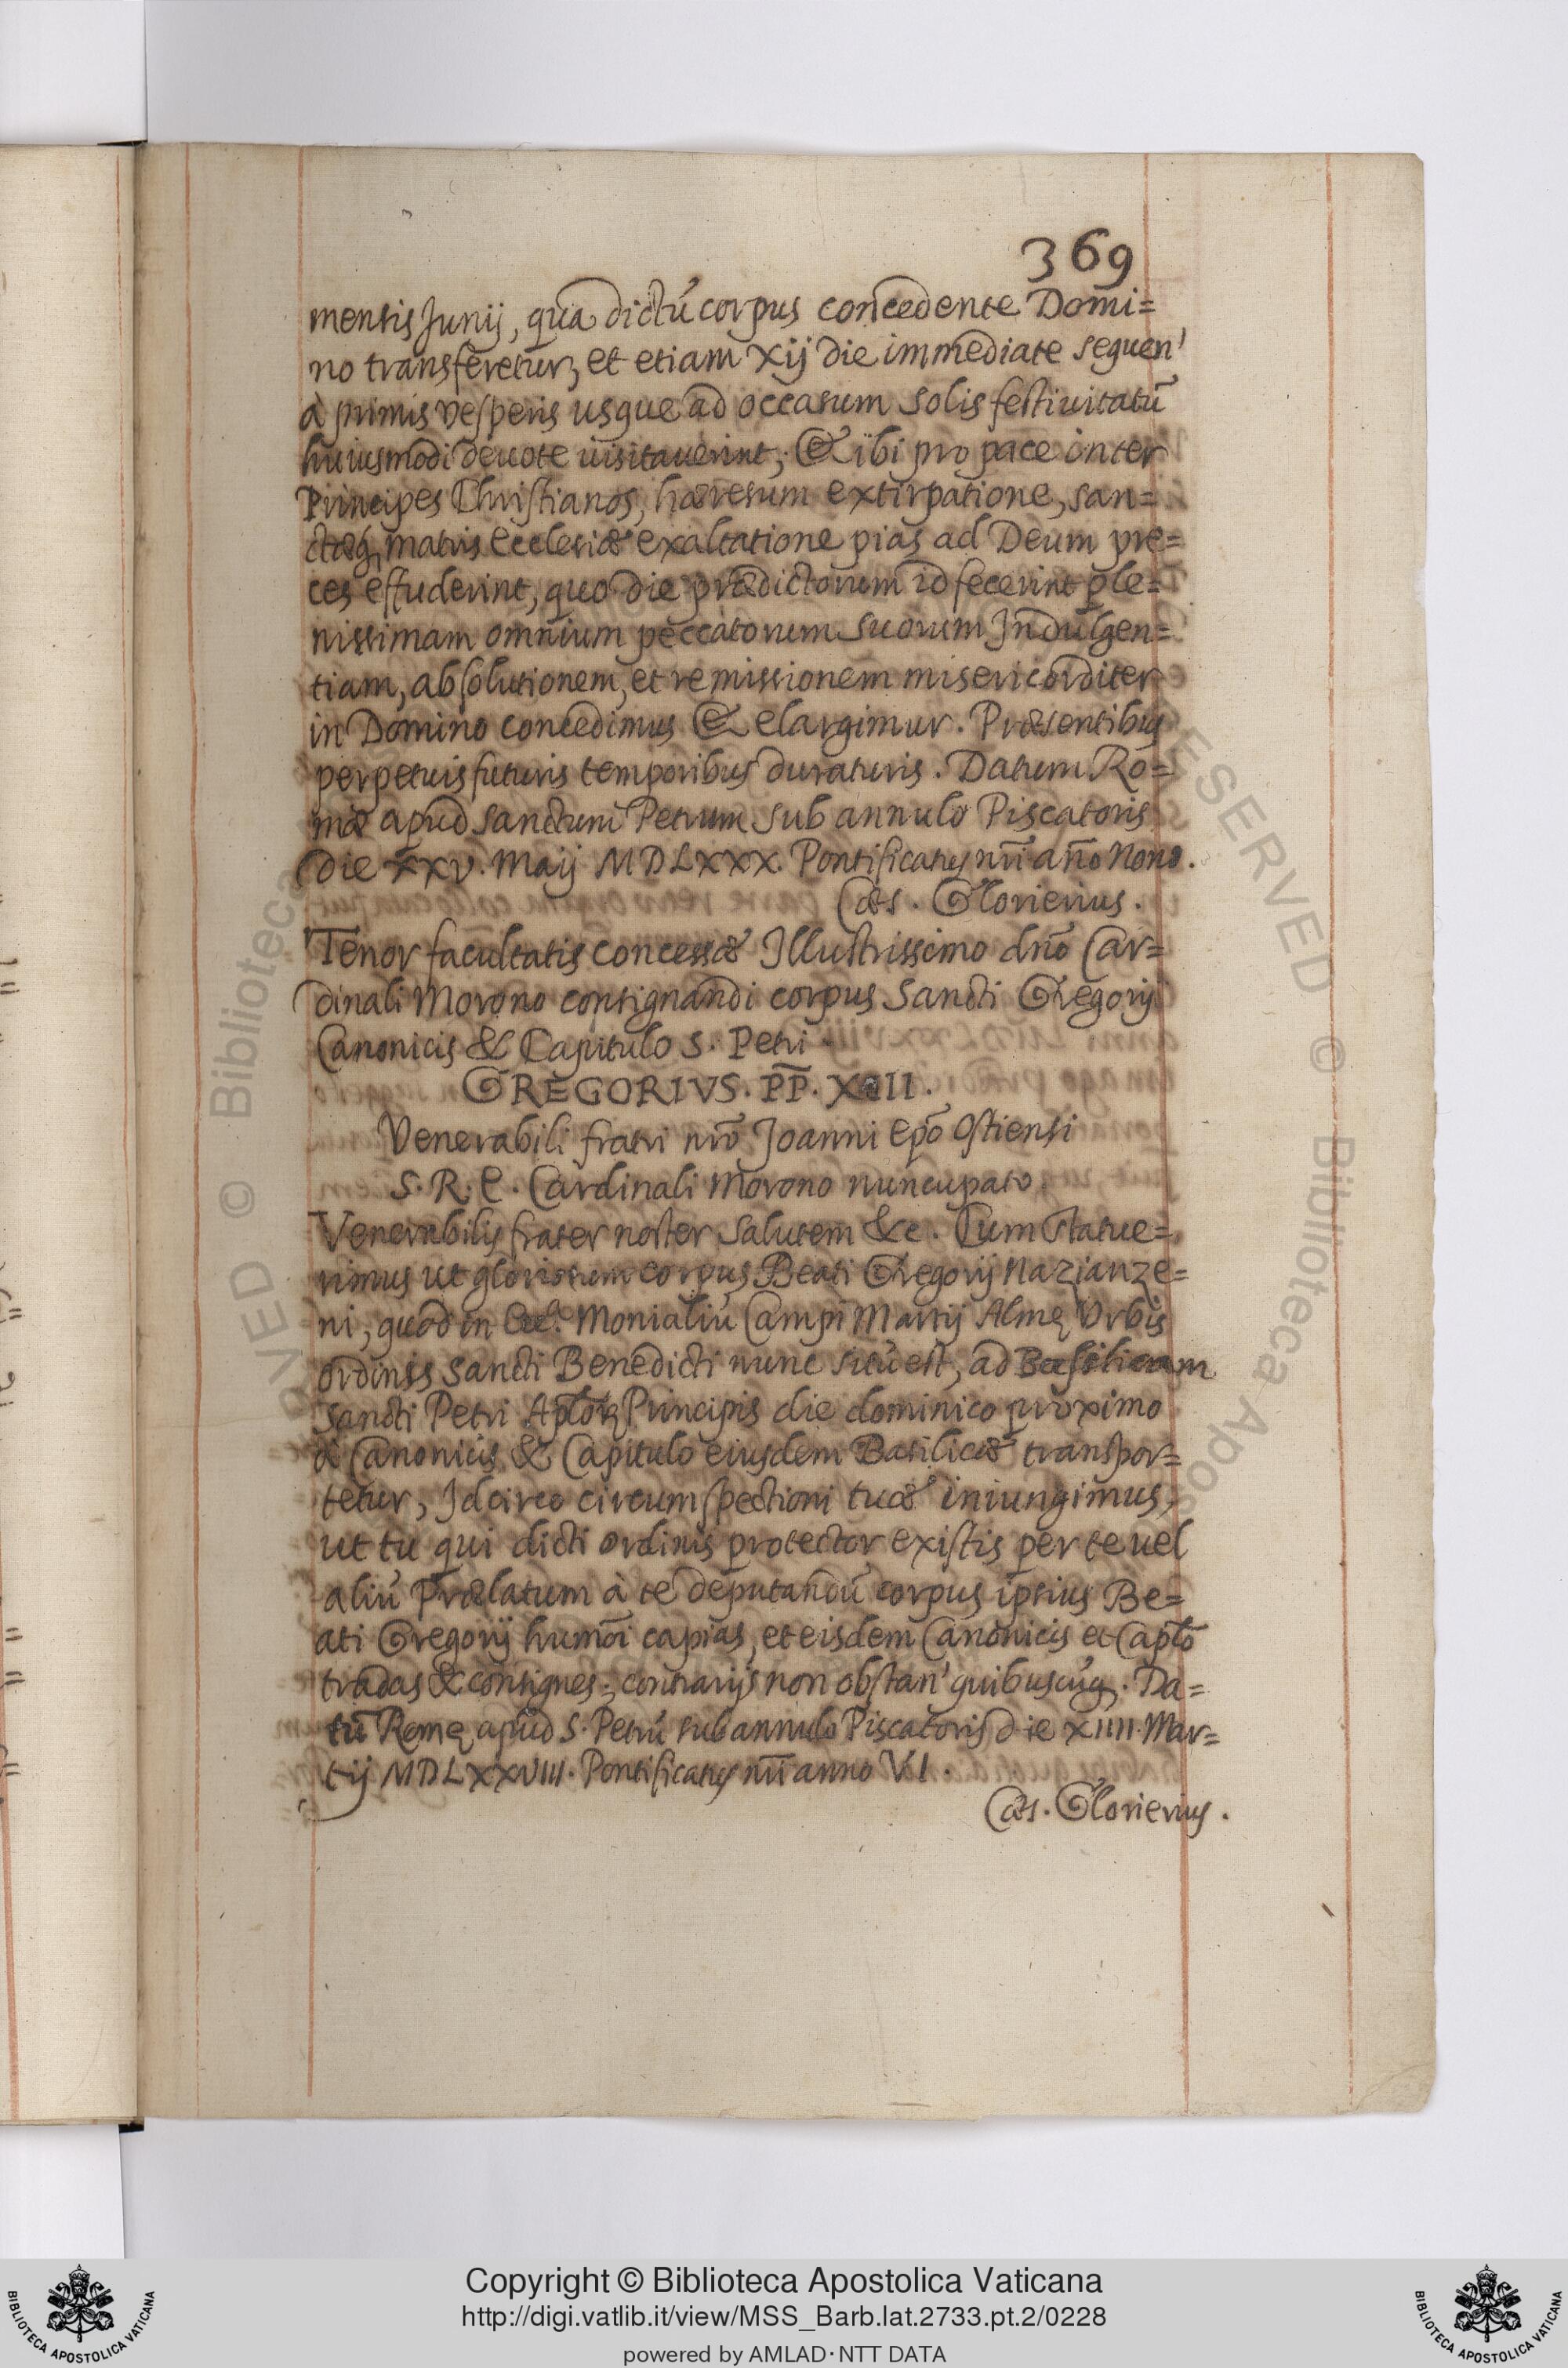 369
mensis Junij, qua dictũ corpus concedente Domi=
no transferetur, et etiam xij die immediate sequen'
à primis vesperis usque ad occasum solis festiuitatũ
huiusmodi deuote uisitauerint; & ibi pro pace inter
Principes Christianos, hæresum extirpatione, san=
ctæq; matris Ecclesiæ exaltatione pias ad Deum pre=
ces effuderint, quo die prædictorum id fecerint ple=
nissimam omnium peccatorum suorum Indulgen=
tiam, absolutionem, et remissionem misericorditer
in Domino concedimus & elargimur. Præsentibus
perpetuis futuris temporibus duraturis. Datum Ro=
mæ apud sanctum Petrum sub annulo Piscatoris
die xxv. Maij MDLXXX. Pontificatus nr̃i año Nono.
Cæs. Glorierius.
Tenor facultatis concessæ Illustrissimo dño Car=
dinali Morono consignandi corpus Sancti Gregorij
Canonicis & Capitulo S. Petri
GREGORIVS. PP̃. XIII.
Venerabili fratri nr̃o Joanni Ep̃o Ostiensi
S. R. E. Cardinali Morono nuncupato
Venerabilis frater noster salutem &c. Cum statue=
rimus ut gloriosum corpus Beati Gregorij Nazianze=
ni, quod in Eccl.ª Monialiũ Campi Martij Almę Vrbis
ordinis sancti Benedicti nunc sitũ est, ad Basilicam
sancti Petri Aplõꝝ Principis die dominico proximo
à Canonicis & Capitulo eiusdem Basilicæ transpor=
tetur, Idcirco circumspectioni tuæ iniungimus,
ut tu qui dicti ordinis protector existis per te uel
aliũ Prælatum à te deputandũ corpus ipsius Be=
ati Gregorij humõi capias, et eisdem Canonicis et Caplõ
tradas & consignes; contrarijs non obstan' quibuscũq;. Da=
tũ Romę apud S. Petrũ sub annulo Piscatoris die XIIII. Mar=
tij MDLXXVIII. Pontificatus nr̃i anno VI.
Cæs. Glorierius.
Copyright © Biblioteca Apostolica Vaticana
http://digi.vatlib.it/view/MSS_Barb.lat.2733.pt.2/0228
powered by AMLAD·NTT DATA
BIBLIOTECA APOSTOLICA VATICANA
BIBLIOTECA APOSTOLICA VATICANA